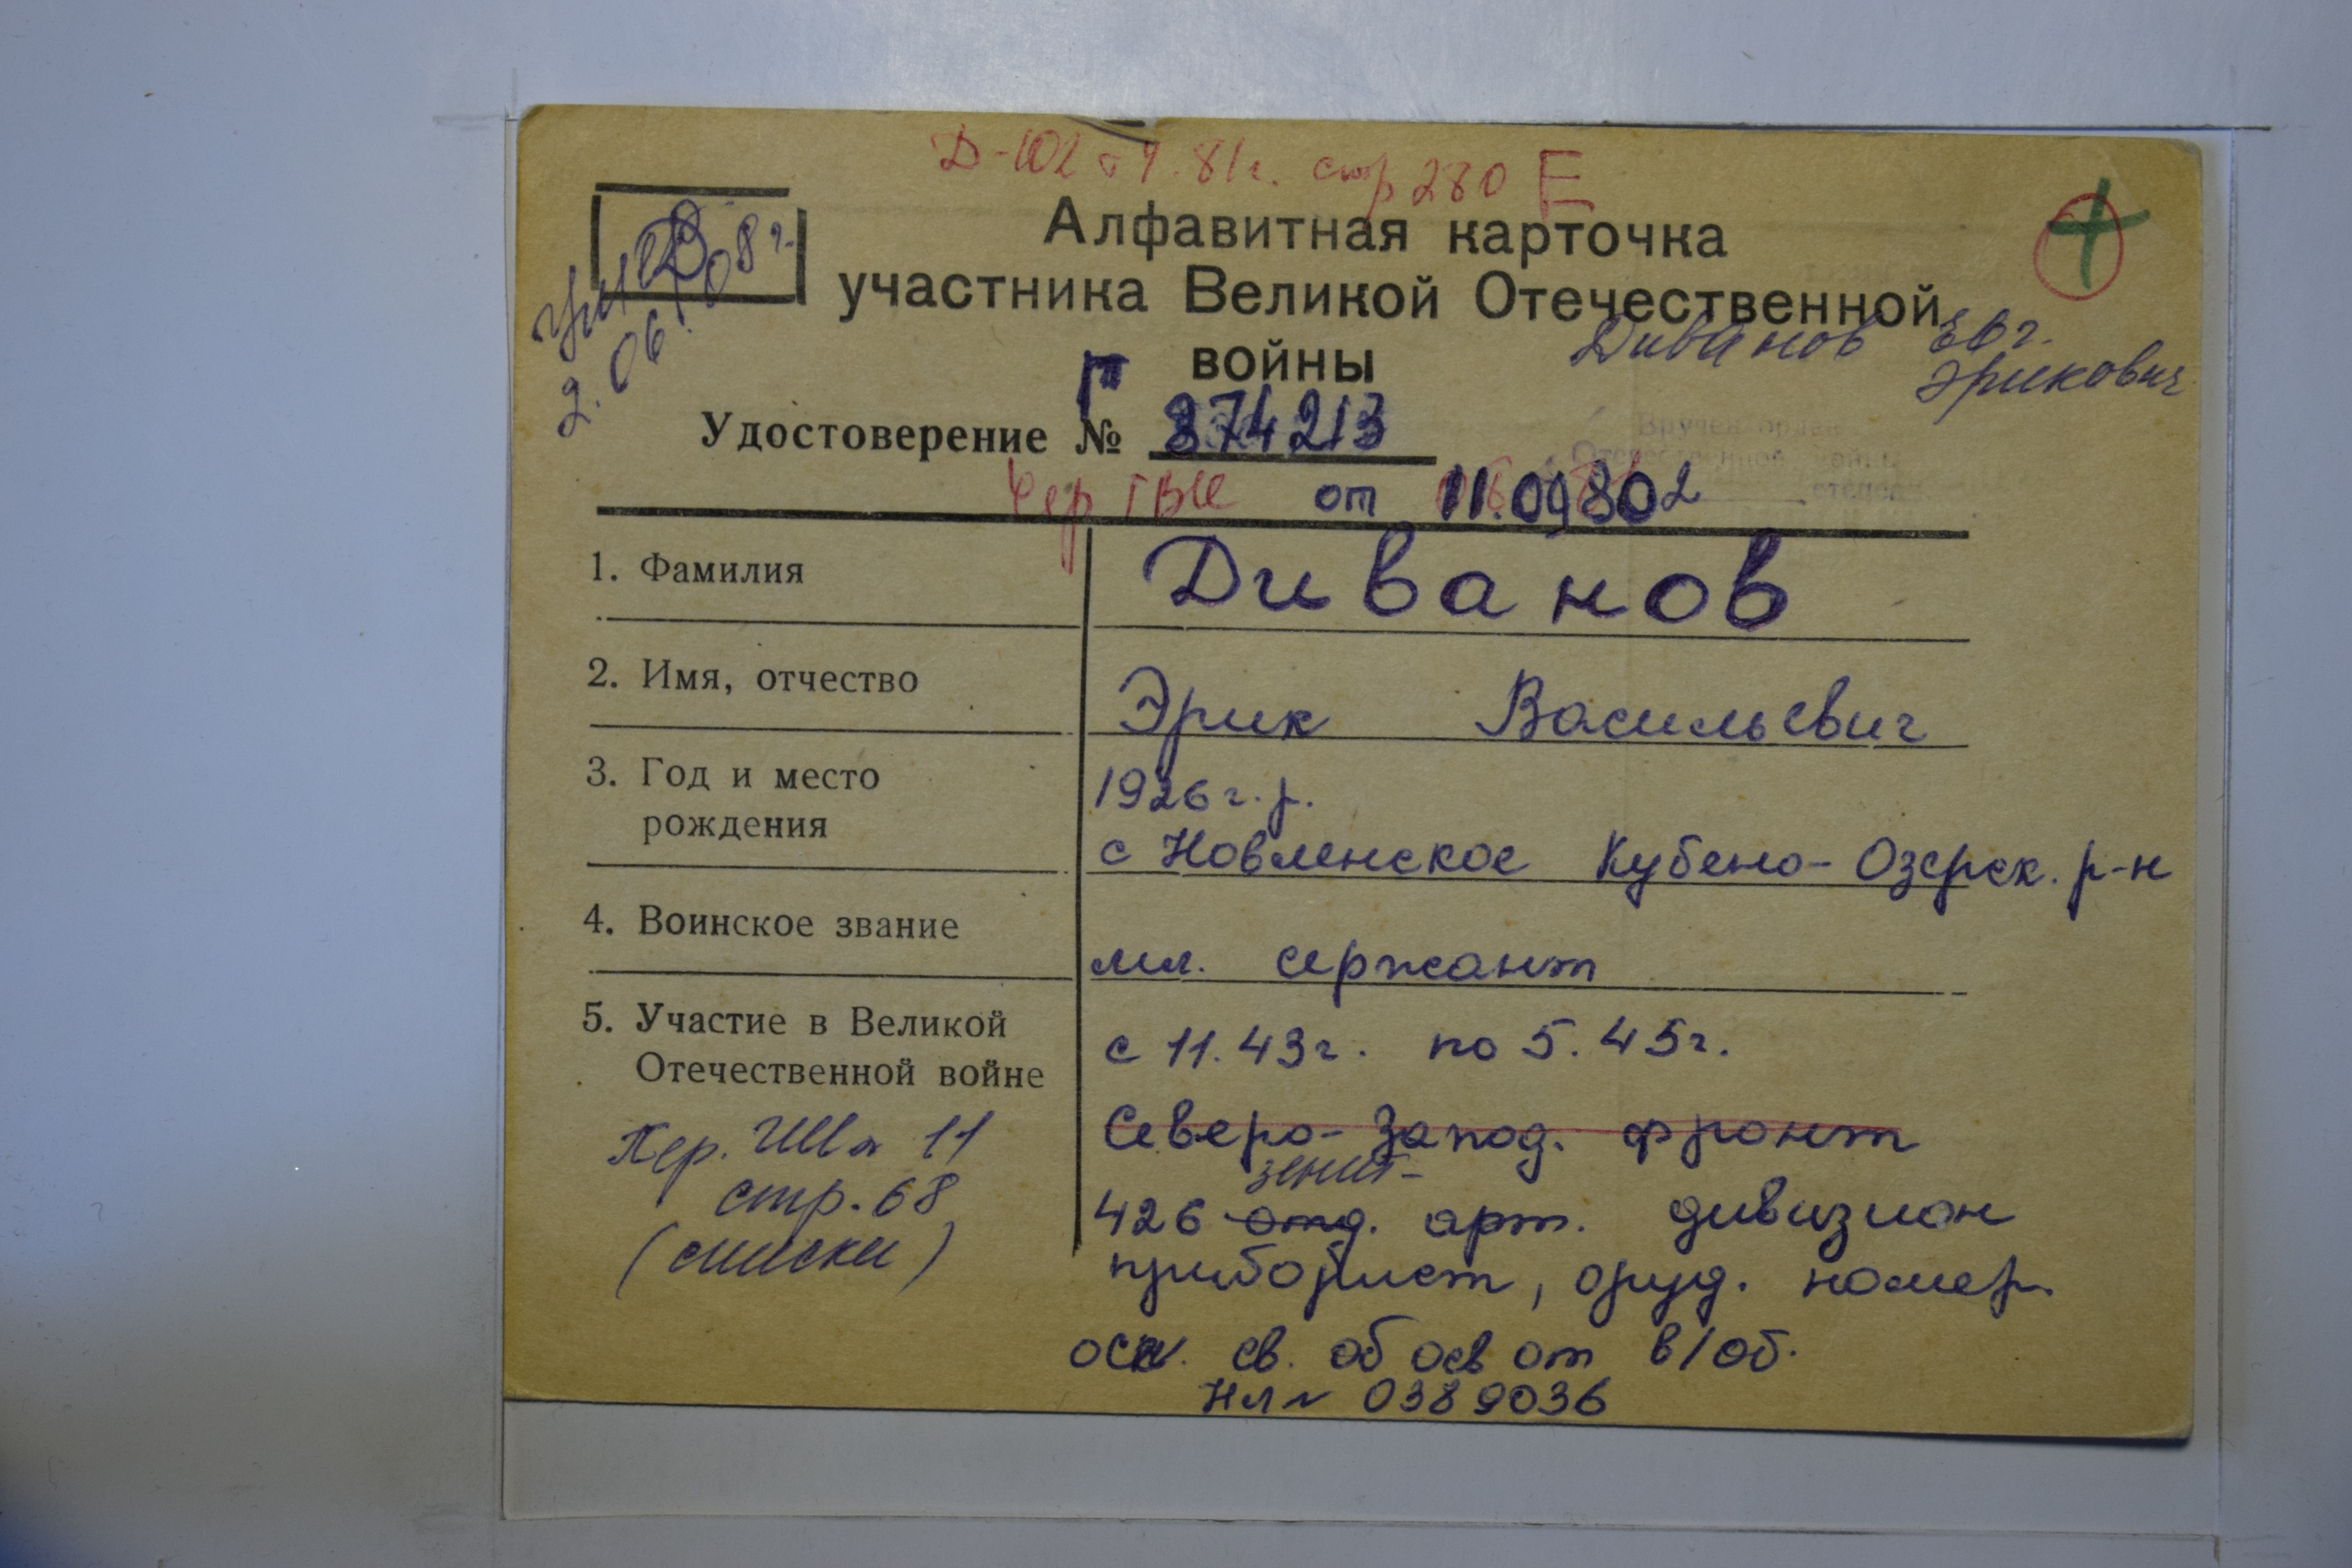 Д-102 от 9.81г. стр 280 Е
Алфавитная карточка
участника Великой Отечественной
войны
умер
2. 06.10.08г.
Диванов
Эрикович
Удостоверение № 374213
Вручен орден
Отечественной войны
степени
от 11.09.80г
1. Фамилия Диванов
2. Имя, отчество Эрик Васильевич
3. Год и место рождения 1926г.р.
с Новленское Кубено-Озерск. р-н
4. Воинское звание мл. сержант
5. Участие в Великой Отечественной войне с 11.43г. по 5.45г.
Северо-Запад. фронт
зенит-
426 отд. арт. дивизион
приборист, оруд. номер.
осн. св. об осв от в/об.
НЛ № 0389036
Пер. 11
стр. 68
(списки)